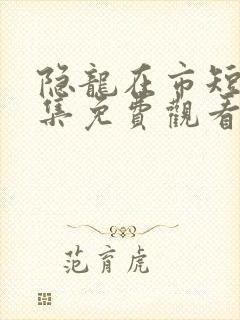 隐龍在市短
集免費觀看
范育虎